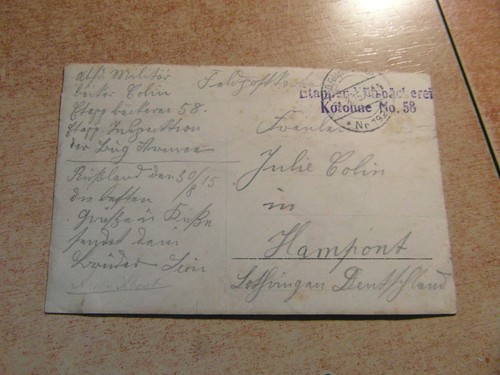 Militär
Colin
Etapp bäckerei 58.
Etapp Inspecktion
der Bug Armee
Rußland den 30/8 15
die besten
Grüße u Küße
sendet dein
Bruder Lein
Feldpostkarte
Etappen
bäckerei
Kolonne No. 58
Fräulein
Julie Colin
in
Hampont
Lothringen Deutschland